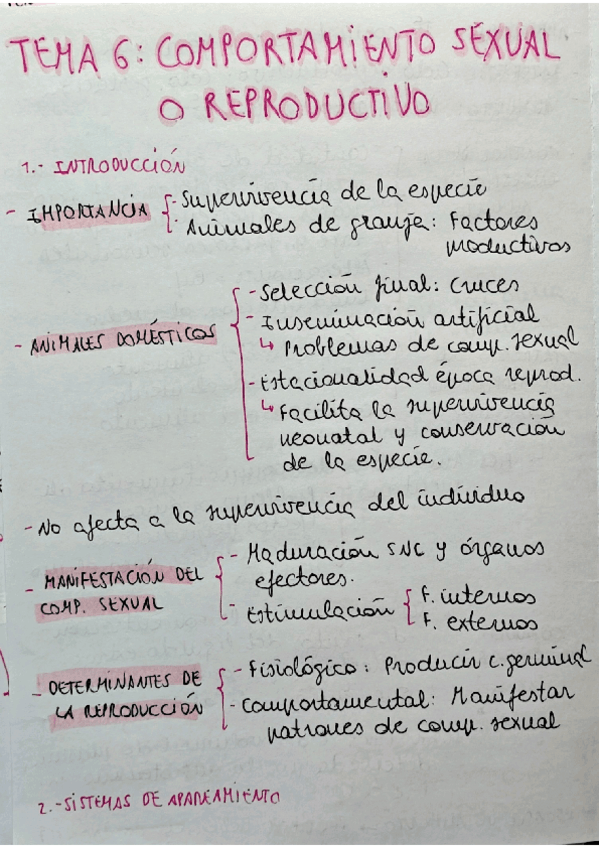 TEMA 6: COMPORTAMIENTO SEXUAL
O REPRODUCTIVO
1.- INTRODUCCIÓN
- IMPORTANCIA - Supervivencia de la especie
- Animales de granja: Factores
productivos
- ANIMALES DOMÉSTICOS - Selección final: Cruces
- Inseminación artificial
↳ Problemas de comp. sexual
- Estacionalidad época reprod.
↳ Facilita la supervivencia
neonatal y conservación
de la especie.
- No afecta a la supervivencia del individuo
- MANIFESTACIÓN DEL COMP. SEXUAL - Maduración SNC y órganos
efectores.
- Estimulación F. internos
F. externos
- DETERMINANTES DE LA REPRODUCCIÓN - Fisiológico: Producir c. germinal
- Comportamental: Manifestar
patrones de comp. sexual
2.- SISTEMAS DE APAREAMIENTO